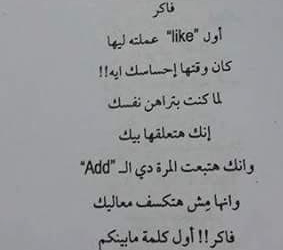 فاكر
أول "like" عملته ليها
كان وقتها إحساسك ايه!!
لما كنت بتراهن نفسك
إنك هتعلقها بيك
وانك هتبعت المرة دي الـ "Add"
وانها مِش هتكسف معاليك
فاكر!! أول كلمة مابينكم